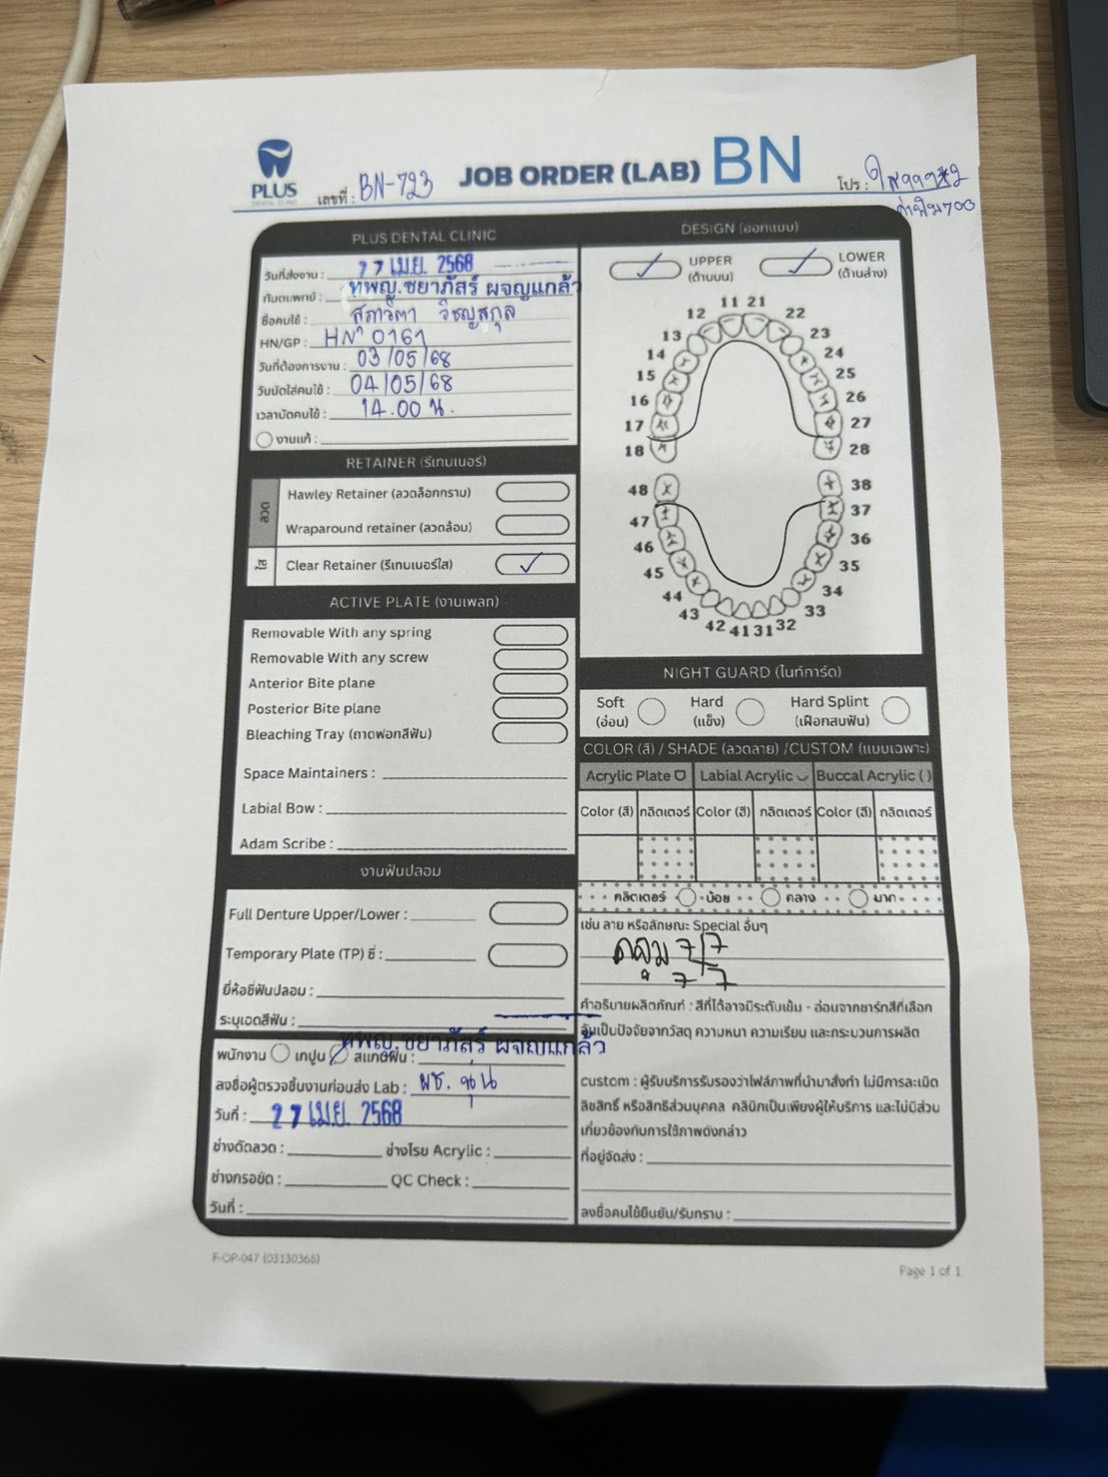 PLUS
DENTAL CLINIC
เลขที่ : BN-723
JOB ORDER (LAB) BN
โปร : ใส999*2
ค่าพิม700
PLUS DENTAL CLINIC
วันที่ส่งงาน : 27 เม.ย. 2568
ทันตแพทย์ : ทพญ.ชยาภัสร์ ผจญแกล้ว
ชื่อคนไข้ : สุภาวิตา วิชญสกุล
HN/GP : HN 0161
วันที่ต้องการงาน : 03/05/68
วันนัดใส่คนไข้ : 04/05/68
เวลานัดคนไข้ : 14.00 น.
งานแก้ :
RETAINER (รีเทนเนอร์)
ลวด
Hawley Retainer (ลวดล็อกกราม)
Wraparound retainer (ลวดล้อม)
ใส
Clear Retainer (รีเทนเนอร์ใส)
ACTIVE PLATE (งานเพลท)
Removable With any spring
Removable With any screw
Anterior Bite plane
Posterior Bite plane
Bleaching Tray (ถาดฟอกสีฟัน)
Space Maintainers :
Labial Bow :
Adam Scribe :
งานฟันปลอม
Full Denture Upper/Lower :
Temporary Plate (TP) ซี่ :
ยี่ห้อซี่ฟันปลอม :
ระบุเฉดสีฟัน :
ทพญ.ชยาภัสร์ ผจญแกล้ว
พนักงาน เทปูน สแกนฟัน :
ลงชื่อผู้ตรวจชิ้นงานก่อนส่ง Lab : ผช. นุ่น
วันที่ : 27 เม.ย. 2568
ช่างดัดลวด : ช่างโรย Acrylic :
ช่างกรอขัด : QC Check :
วันที่ :
DESIGN (ออกแบบ)
UPPER
(ด้านบน)
LOWER
(ด้านล่าง)
11 21
12 22
13 23
14 24
15 25
16 26
17 27
18 28
48 38
47 37
46 36
45 35
44 34
43 33
42 41 31 32
NIGHT GUARD (ไนท์การ์ด)
Soft
(อ่อน)
Hard
(แข็ง)
Hard Splint
(เฝือกสบฟัน)
COLOR (สี) / SHADE (ลวดลาย) /CUSTOM (แบบเฉพาะ)
Acrylic Plate Labial Acrylic Buccal Acrylic ( )
Color (สี) กลิตเตอร์ Color (สี) กลิตเตอร์ Color (สี) กลิตเตอร์
กลิตเตอร์ น้อย กลาง มาก
เช่น ลาย หรือลักษณะ Special อื่นๆ
คลุม 7|7
7|7
คำอธิบายผลิตภัณฑ์ : สีที่ได้อาจมีระดับเข้ม - อ่อนจากชาร์ทสีที่เลือก
อันเป็นปัจจัยจากวัสดุ ความหนา ความเรียบ และกระบวนการผลิต
custom : ผู้รับบริการรับรองว่าไฟล์ภาพที่นำมาสั่งทำ ไม่มีการละเมิด
ลิขสิทธิ์ หรือสิทธิส่วนบุคคล คลินิกเป็นเพียงผู้ให้บริการ และไม่มีส่วน
เกี่ยวข้องกับการใช้ภาพดังกล่าว
ที่อยู่จัดส่ง :
ลงชื่อคนไข้ยืนยัน/รับทราบ :
F-OP-047 (03130368)
Page 1 of 1